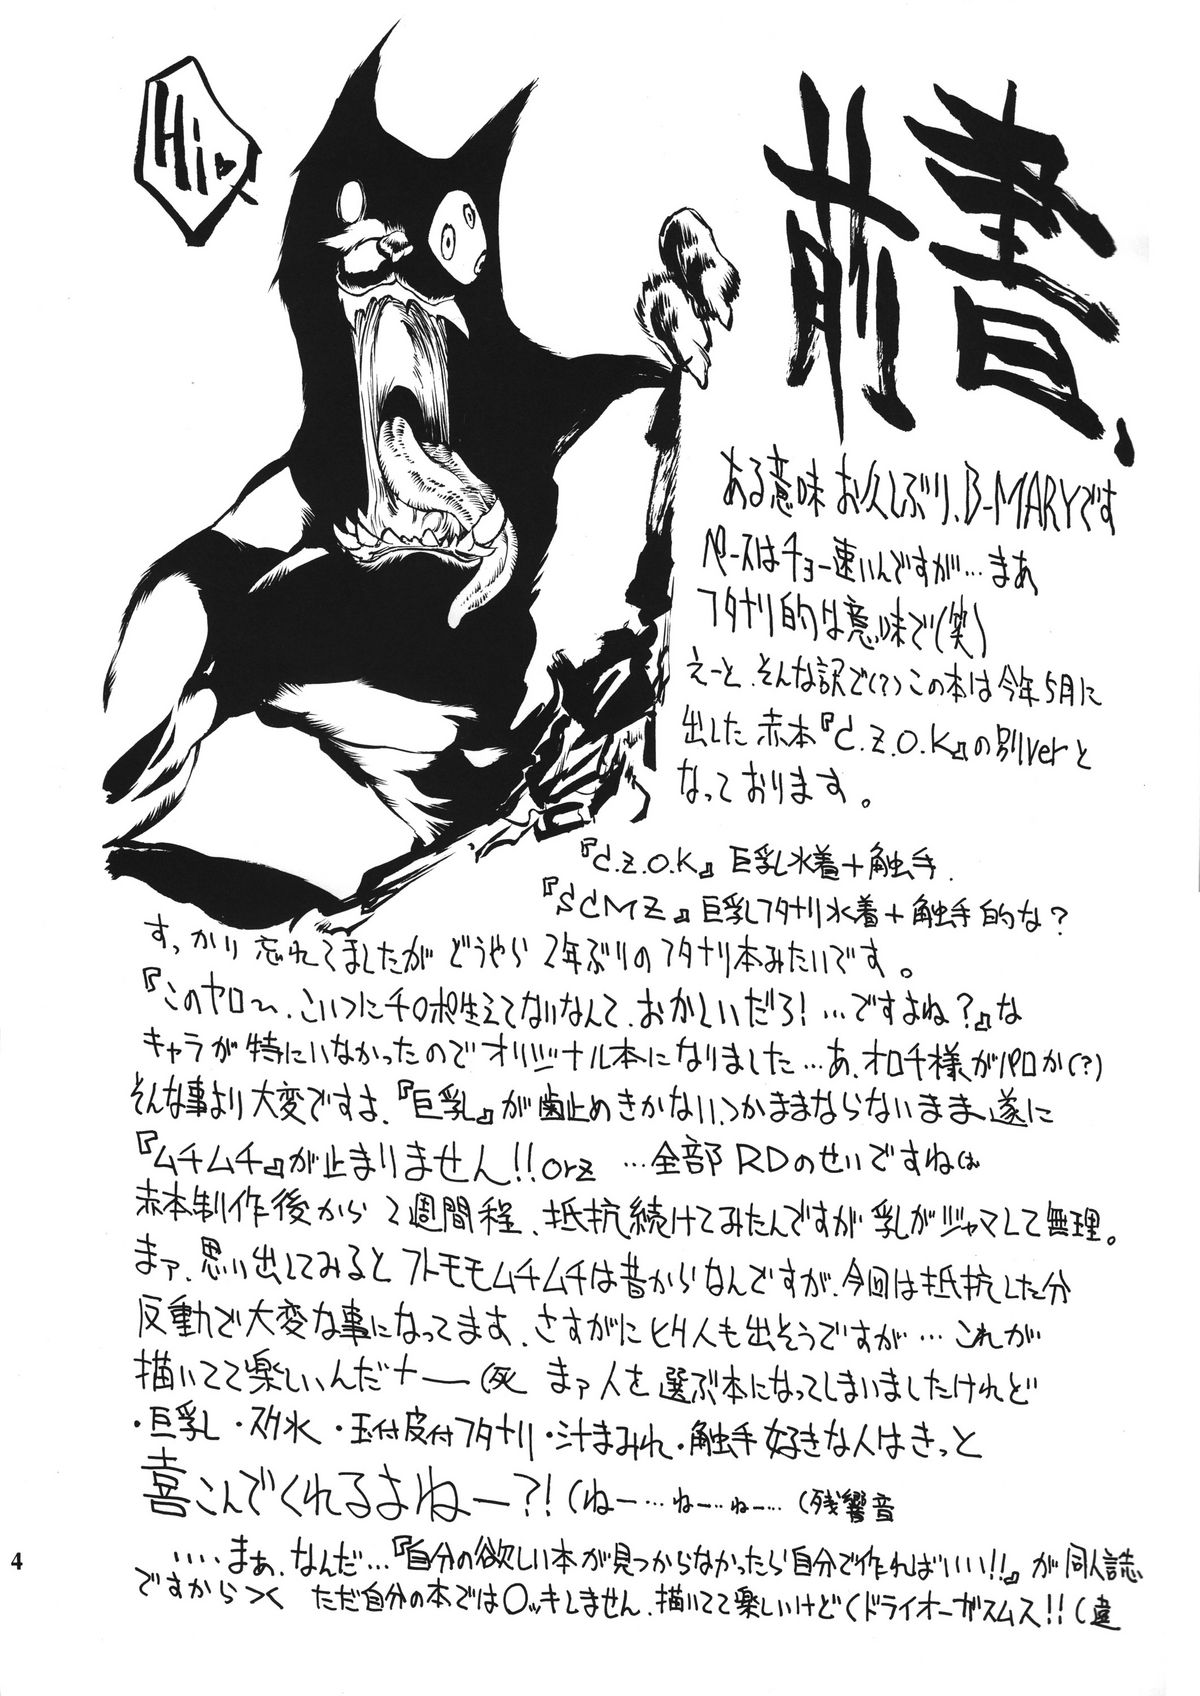 Hi♥
前書、
ある意味お久しぶり、B-MARYです
ペースはチョー速いんですが…まぁ
フタナリ的な意味で(笑)
えーと、そんな訳で(?)この本は今年5月に
出した赤本『C.Z.O.K』の別verと
なっております。
『C.Z.O.K』巨乳水着+触手.
『SCMZ』巨乳フタナリ水着+触手的な?
すっかり忘れてましたがどうやら2年ぶりのフタナリ本みたいです。
『このヤロ〜、こいつにチ○ポ生えてないなんて、おかしいだろ!…ですよね?』な
キャラが特にいなかったのでオリジナル本になりました…あ、オロチ様がパロか(?)
そんな事より大変ですよ、『巨乳』が歯止めきかないつかままならないまま遂に
『ムチムチ』が止まりません!!orz …全部RDのせいですねは
赤本制作後から2週間程、抵抗続けてみたんですが乳がジャマして無理。
まァ、思い出してみるとフトモモムチムチは昔からなんですが、今回は抵抗した分
反動で大変な事になってます、さすがにヒク人も出そうですが…これが
描いてて楽しいんだナー(死 まァ人を選ぶ本になってしまいましたけれど
・巨乳・スク水・玉付皮付フタナリ・汁まみれ・触手好きな人はきっと
喜こんでくれるよねー?!(ねー…ねー…ねー…(残響音
‥‥まぁ、なんだ…『自分の欲しい本が見つからなかったら自分で作ればいい!!』が同人誌
ですからっく ただ自分の本では○ッキしません、描いてて楽しいけどくドライオーガスムス!!(違
4